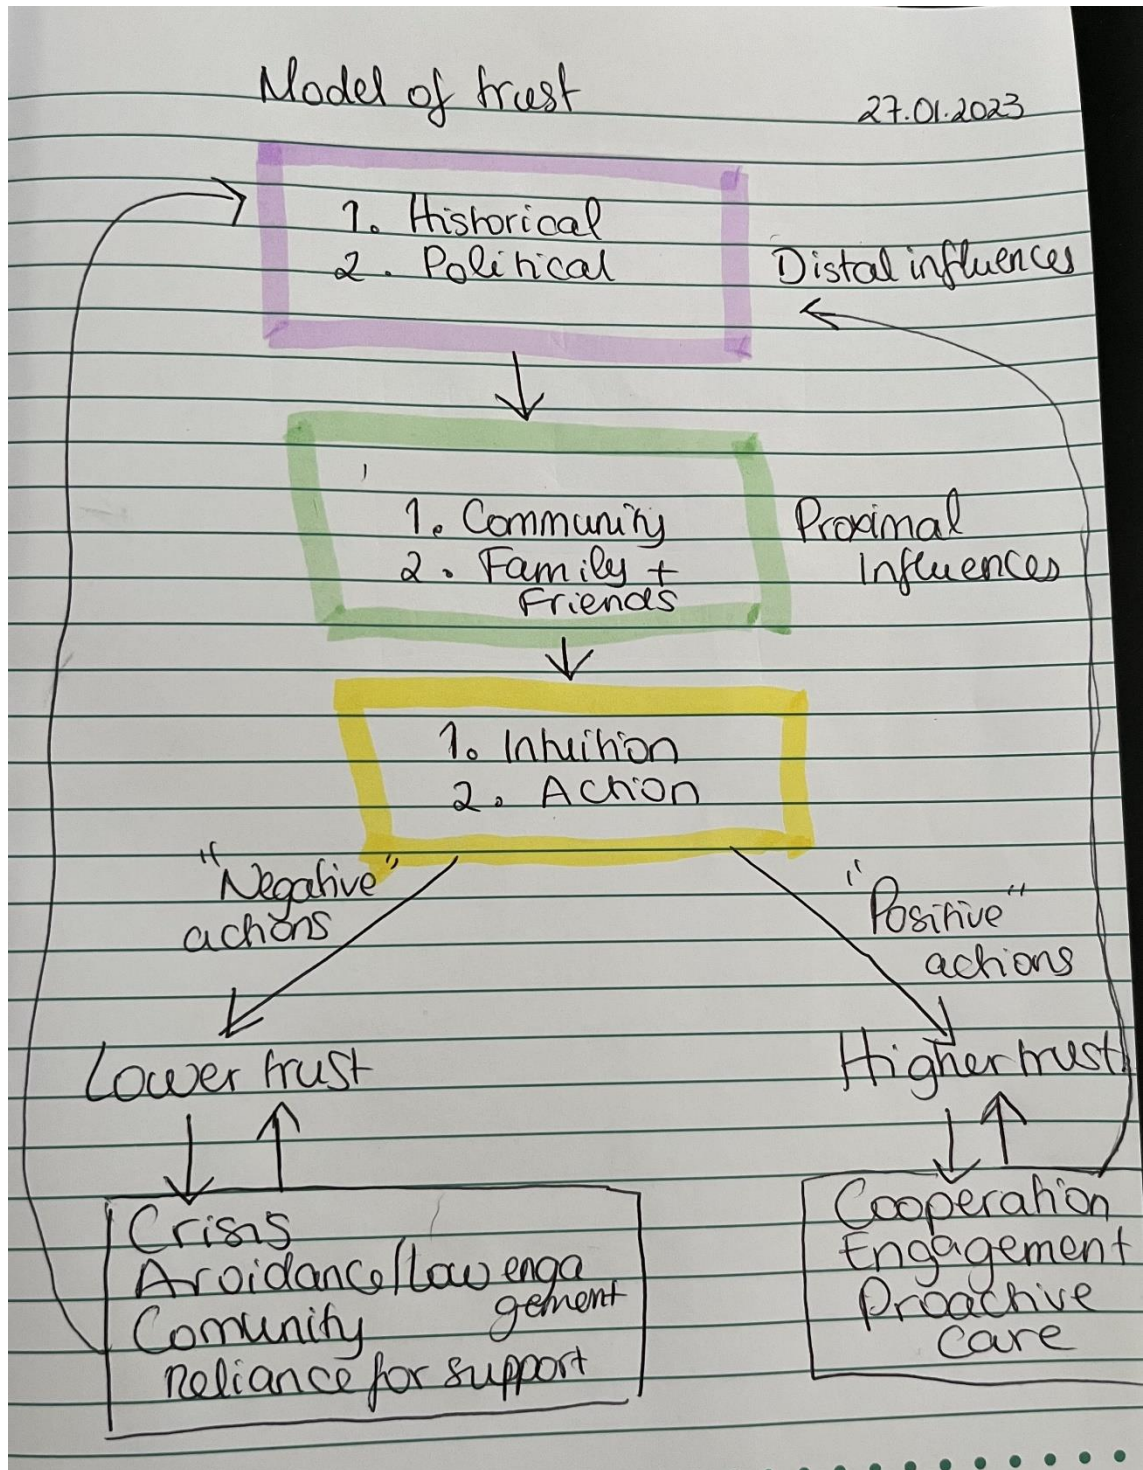 Model of trust
27.01.2023
1. Historical
2. Political
Distal influences
1. Community
2. Family +
Friends
Proximal
Influences
1. Intuition
2. Action
"Negative"
actions
"Positive"
actions
Lower trust
Higher trust
Crisis
Avoidance/low enga
gement
Comunity
Reliance for support
Cooperation
Engagement
Proactive
Care